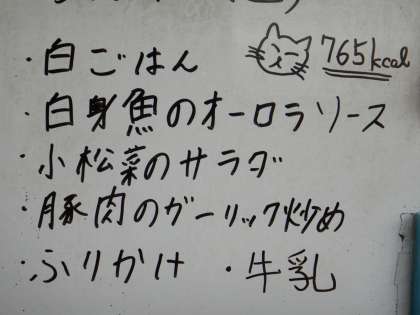 ・白ごはん 765kcal
・白身魚のオーロラソース
・小松菜のサラダ
・豚肉のガーリック炒め
・ふりかけ ・牛乳